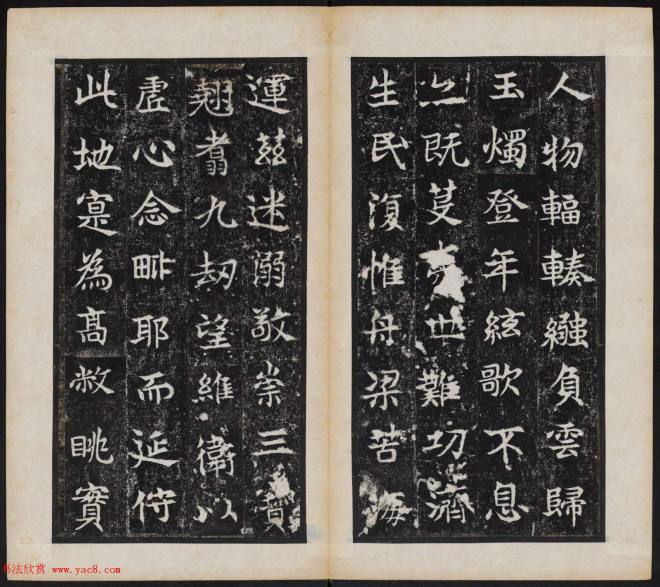 人物輻輳繈負雲歸
玉燭登年絃歌不息
亦既芟世難切濟
生民復惟舟梁苦海
運茲迷溺敬崇三寶
翹翥九刼望維衛以
虛心念毗耶而延佇
此地寔為髙敞眺實
书法欣赏 www.yac8.com